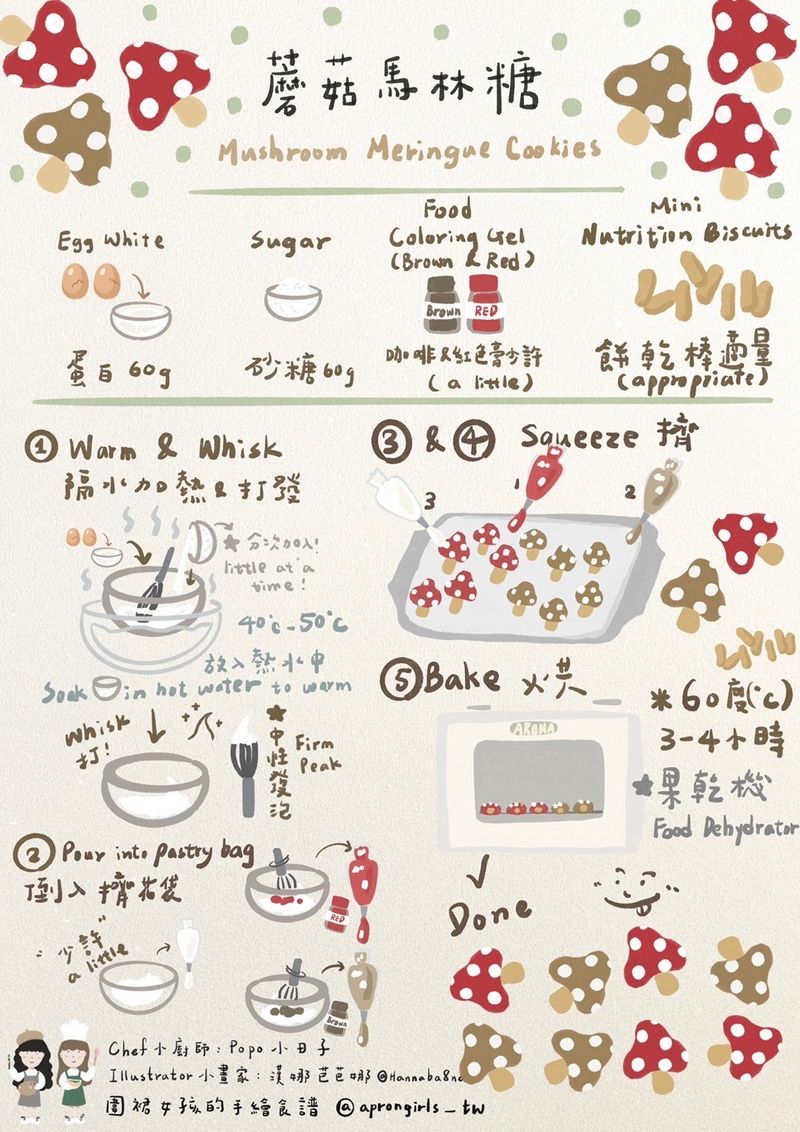 蘑菇馬林糖
Mushroom Meringue Cookies
Egg White
蛋白60g
Sugar
砂糖60g
Food
Coloring Gel
(Brown & Red)
Brown
RED
咖啡&紅色膏少許
(a little)
Mini
Nutrition Biscuits
餅乾棒適量
(appropriate)
① Warm & Whisk
隔水加熱&打發
★分次加入!
little at a
time!
40°c-50°c
放入熱水中
Soak in hot water to warm
Whisk
打!
★中性發泡
Firm
Peak
② Pour into pastry bag
倒入擠花袋
"少許"
a little
RED
Brown
③ & ④ Squeeze 擠
3
1
2
⑤ Bake 烘
AROMA
*60度(°c)
3-4小時
★果乾機
Food Dehydrator
✓
Done
Chef小廚師:Popo小日子
Illustrator小畫家:漢娜芭芭娜@Hannaba8na
圍裙女孩的手繪食譜 @aprongirls_tw